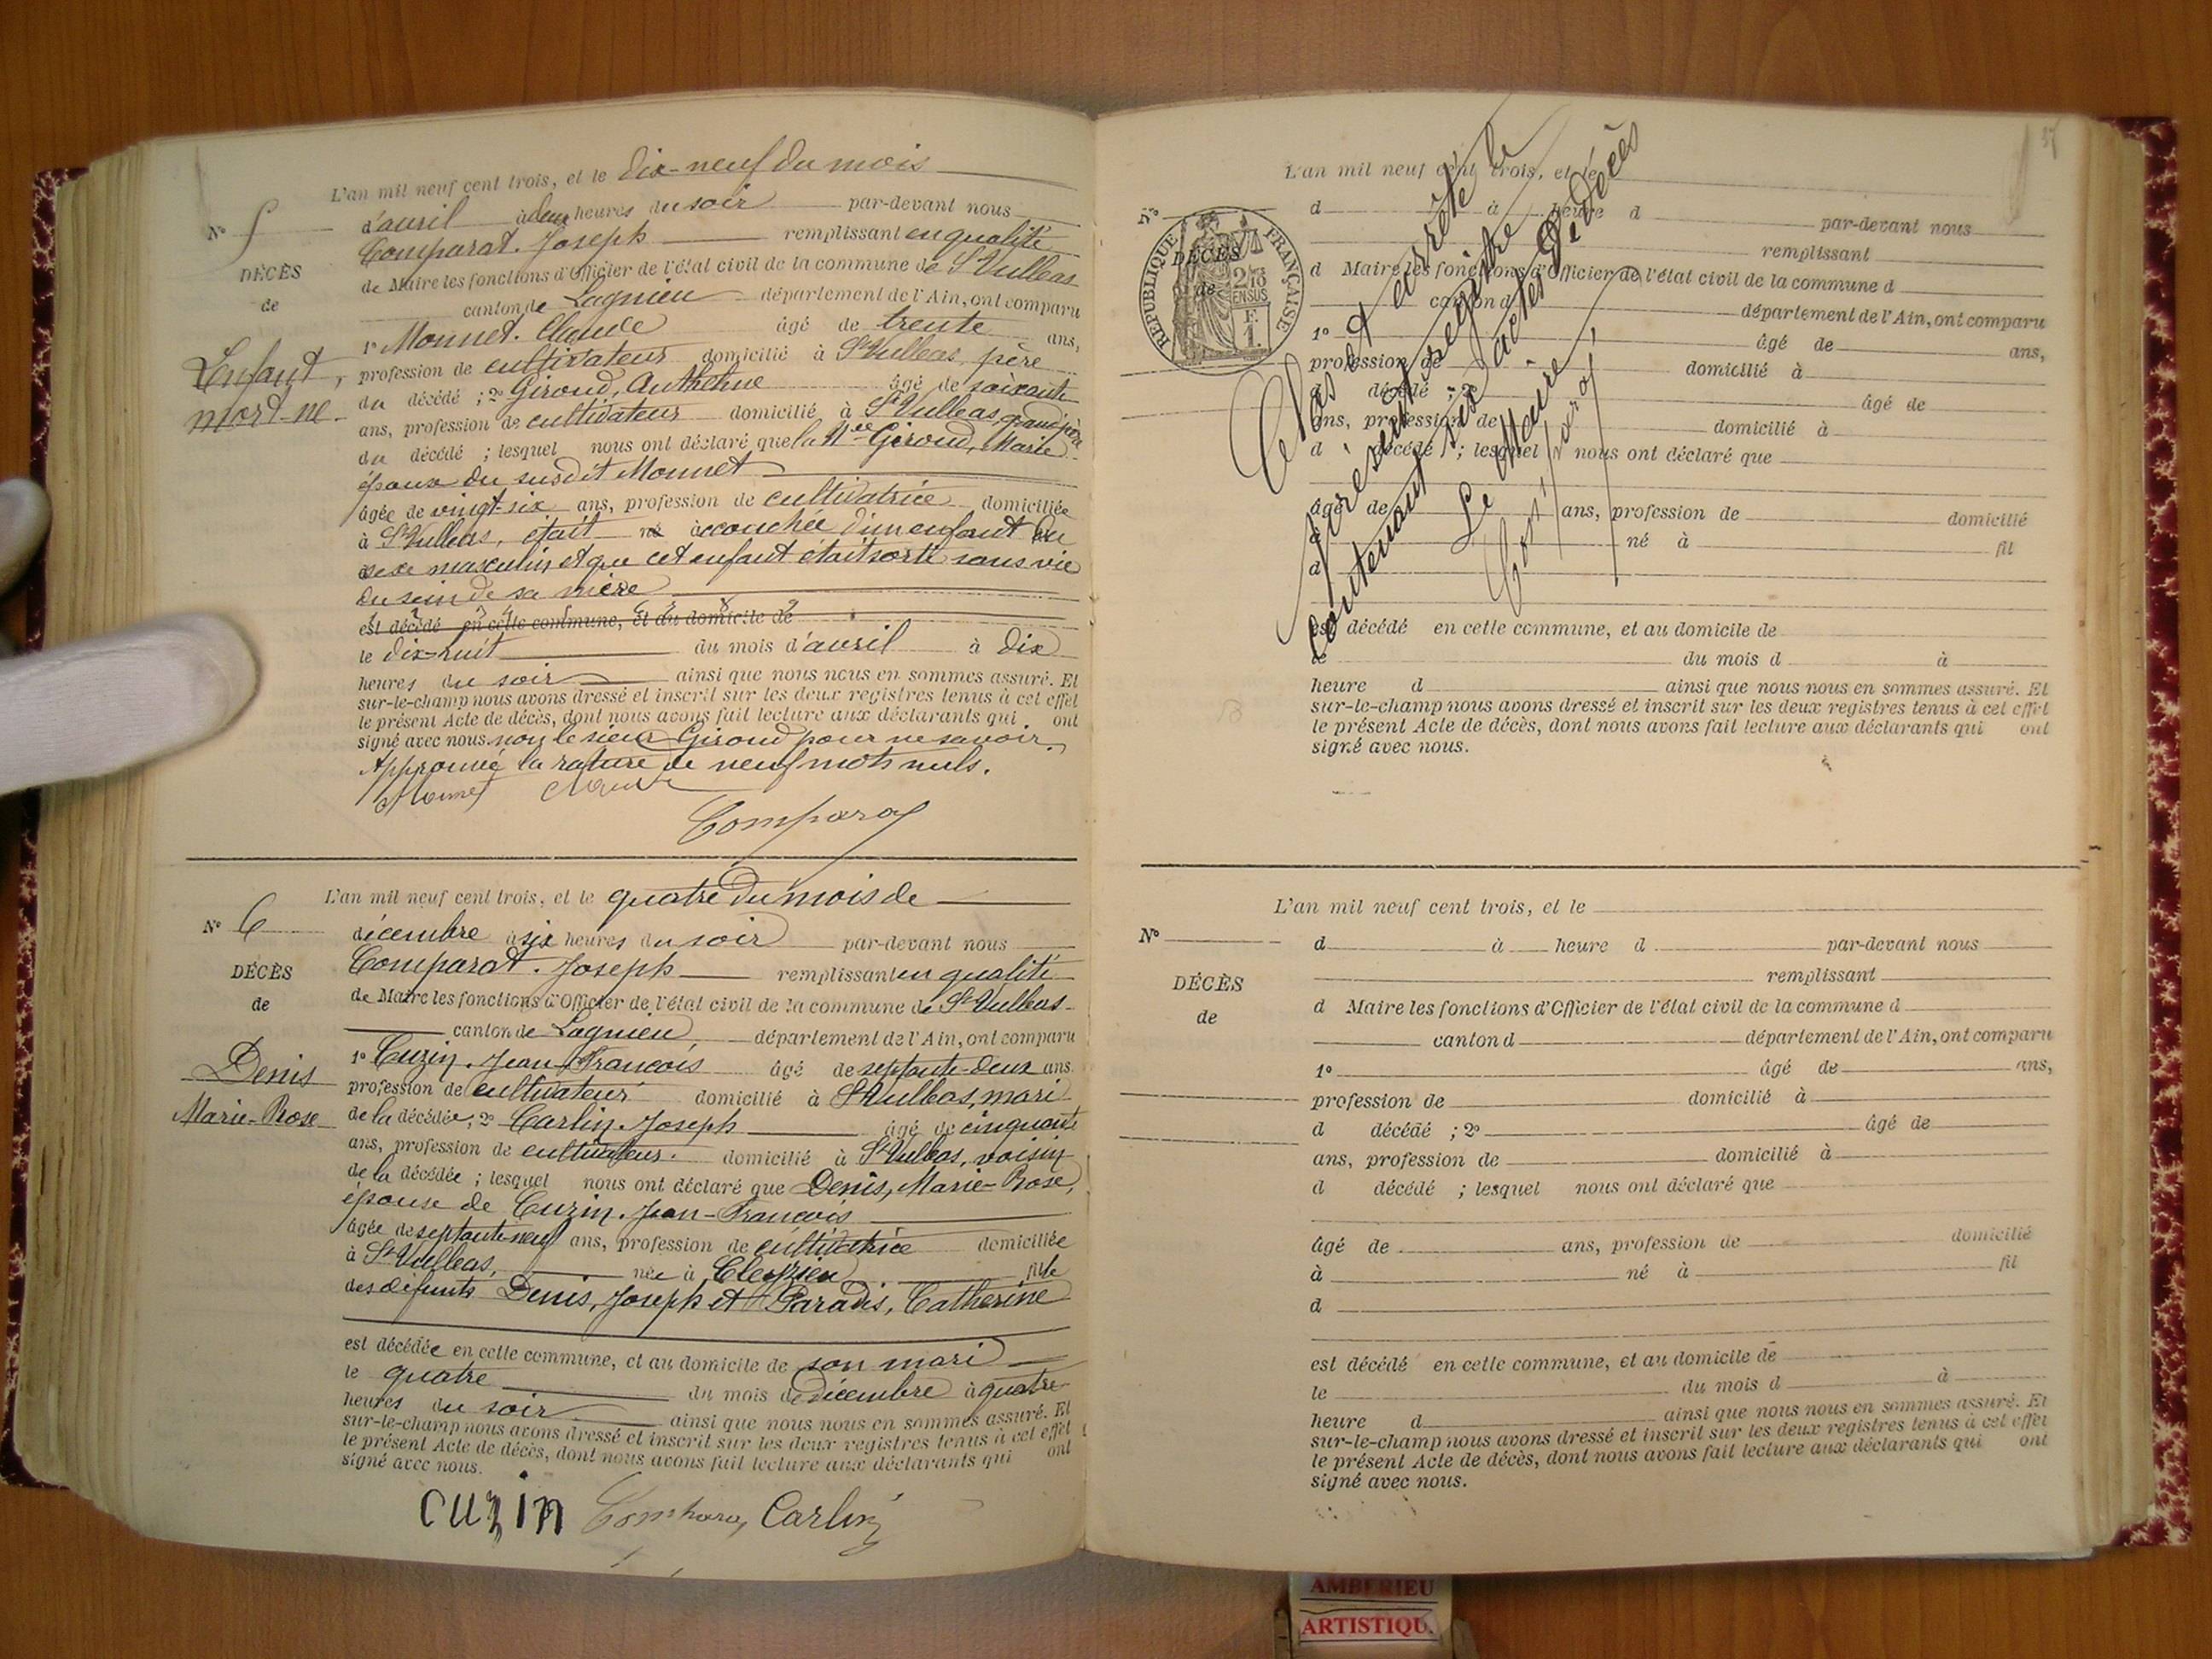 L'an mil neuf cent trois, et le dix-neuf du mois
N° 5
d'avril à deux heures du soir par-devant nous
Comparat. Joseph remplissant en qualité
DÉCÈS
de Maire les fonctions d'Officier de l'état civil de la commune de St Vulbas
de
canton de Lagnieu département de l'Ain, ont comparu
1° Monnet. Claude âgé de trente ans,
L'enfant,
profession de cultivateur domicilié à St Vulbas, père
mort-né
du décédé ; 2° Giroud, Anthelme âgé de soixante
ans, profession de cultivateur domicilié à St Vulbas, grand'père
du décédé ; lesquel nous ont déclaré que la née Giroud, Marie
épouse du susdit Monnet
âgée de vingt-six ans, profession de cultivatrice domiciliée
à St Vulbas, était né accouchée d'un enfant du
sexe masculin et que cet enfant était sorti sans vie
du sein de sa mère
est décédé en cette commune, et au domicile de
le dix-huit du mois d'avril à dix
heures du soir ainsi que nous nous en sommes assuré. Et
sur-le-champ nous avons dressé et inscrit sur les deux registres tenus à cet effet
le présent Acte de décès, dont nous avons fait lecture aux déclarants qui ont
signé avec nous. non le sieur Giroud pour ne savoir.
Approuvé la rature de neuf mots nuls.
Monnet Claude
Comparat
L'an mil neuf cent trois, et le quatre du mois de
N° 6
décembre à six heures du soir par-devant nous
Comparat. Joseph remplissant en qualité
DÉCÈS
de Maire les fonctions d'Officier de l'état civil de la commune de St Vulbas
de
canton de Lagnieu département de l'Ain, ont comparu
Denis
1° Cuzin. Jean-François âgé de septante-deux ans
profession de cultivateur domicilié à St Vulbas, mari
Marie-Rose
de la décédée, 2° Carlin. Joseph âgé de cinquante
ans, profession de cultivateur. domicilié à St Vulbas, voisin
de la décédée ; lesquel nous ont déclaré que Denis, Marie-Rose,
épouse de Cuzin. Jean-François
âgée de septante-neuf ans, profession de cultivatrice domiciliée
à St Vulbas, née à fille
des défunts Denis, Joseph et Paradis, Catherine
est décédée en cette commune, et au domicile de son mari
le quatre du mois de décembre à quatre
heures du soir ainsi que nous nous en sommes assuré. Et
sur-le-champ nous avons dressé et inscrit sur les deux registres tenus à cet effet
le présent Acte de décès, dont nous avons fait lecture aux déclarants qui ont
signé avec nous.
cuzin Comparat Carlin
37
L'an mil neuf cent trois, et le
N°
d à heure d par-devant nous
remplissant
DÉCÈS
de
RÉPUBLIQUE FRANÇAISE
2/10 EN SUS
F. 1.
d Maire les fonctions d'Officier de l'état civil de la commune d
canton d département de l'Ain, ont comparu
1° âgé de ans,
profession de domicilié à
d décédé ; 2° âgé de
ans, profession de domicilié à
d décédé ; lesquel nous ont déclaré que
âgé de ans, profession de domicilié
à né à fil
d
est décédé en cette commune, et au domicile de
le du mois d à
heure d ainsi que nous nous en sommes assuré. Et
sur-le-champ nous avons dressé et inscrit sur les deux registres tenus à cet effet
le présent Acte de décès, dont nous avons fait lecture aux déclarants qui ont
signé avec nous.
Clos et arrêté le
présent registre
contenant six actes de décès
Le Maire,
Comparat
L'an mil neuf cent trois, et le
N°
d à heure d par-devant nous
remplissant
DÉCÈS
d Maire les fonctions d'Officier de l'état civil de la commune d
de
canton d département de l'Ain, ont comparu
1° âgé de ans,
profession de domicilié à
d décédé ; 2° âgé de
ans, profession de domicilié à
d décédé ; lesquel nous ont déclaré que
âgé de ans, profession de domicilié
à né à fil
d
est décédé en cette commune, et au domicile de
le du mois d à
heure d ainsi que nous nous en sommes assuré. Et
sur-le-champ nous avons dressé et inscrit sur les deux registres tenus à cet effet
le présent Acte de décès, dont nous avons fait lecture aux déclarants qui ont
signé avec nous.
AMBERIEU
ARTISTIQU